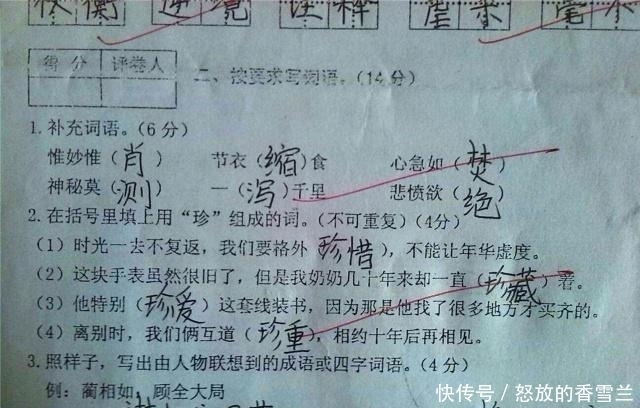 得分 评卷人
二、按要求写词语。(14分)
1.补充词语。(6分)
惟妙惟(肖) 节衣(缩)食 心急如(焚)
神秘莫(测) 一(泻)千里 悲愤欲(绝)
2.在括号里填上用“珍”组成的词。(不可重复)(4分)
(1)时光一去不复返,我们要格外 珍惜),不能让年华虚度。
(2)这块手表虽然很旧了,但是我奶奶几十年来却一直(珍藏)着。
(3)他特别(珍爱)这套线装书,因为那是他找了很多地方才买齐的。
(4)离别时,我们俩互道(珍重),相约十年后再相见。
3.照样子,写出由人物联想到的成语或四字词语。(4分)
例:蔺相如,顾全大局
快传号/怒放的香雪兰